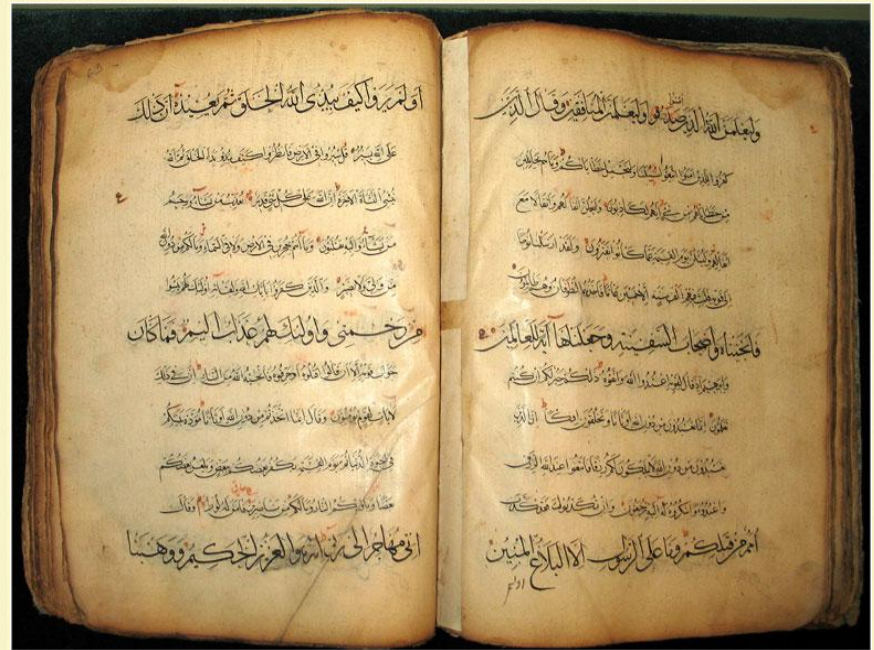 وليعلمن الله الذين صدقوا وليعلمن المنافقين وقال الذين
امنوا
كفروا للذين امنوا اتبعوا سبيلنا ولنحمل خطاياكم وما هم بحاملين
من خطاياهم من شئ انهم لكاذبون وليحملن اثقالهم واثقالا مع
اثقالهم وليسئلن يوم القيمة عما كانوا يفترون ولقد ارسلنا نوحا
الى قومه فلبث فيهم الف سنة الا خمسين عاما فاخذهم الطوفان وهم ظالمون
فانجيناه واصحاب السفينة وجعلناها آية للعالمين
وابرهيم اذ قال لقومه اعبدوا الله واتقوه ذلكم خير لكم ان كنتم
تعلمون انما تعبدون من دون الله اوثانا وتخلقون افكا ان الذين
تعبدون من دون الله لا يملكون لكم رزقا فابتغوا عند الله الرزق
واعبدوه واشكروا له اليه ترجعون وان تكذبوا فقد كذب
امم من قبلكم وما على الرسول الا البلاغ المبين
اولم
اولم يروا كيف يبدئ الله الخلق ثم يعيده ان ذلك
على الله يسير قل سيروا فى الارض فانظروا كيف بدأ الخلق ثم الله
ينشئ النشأة الاخرة ان الله على كل شئ قدير يعذب من يشاء ويرحم
من يشاء واليه تقلبون وما انتم بمعجزين فى الارض ولا فى السماء وما لكم من دون الله
من ولى ولا نصير والذين كفروا بايات الله ولقائه اولئك يئسوا
من رحمتى واولئك لهم عذاب اليم فما كان
جواب قومه الا ان قالوا اقتلوه او حرقوه فانجيه الله من النار ان فى ذلك
لايات لقوم يؤمنون وقال انما اتخذتم من دون الله اوثانا مودة بينكم
فى الحيوة الدنيا ثم يوم القيمة يكفر بعضكم ببعض ويلعن بعضكم
بعضا وماويكم النار وما لكم من ناصرين فامن له لوط وقال
انى مهاجر الى ربى انه هو العزيز الحكيم ووهبنا